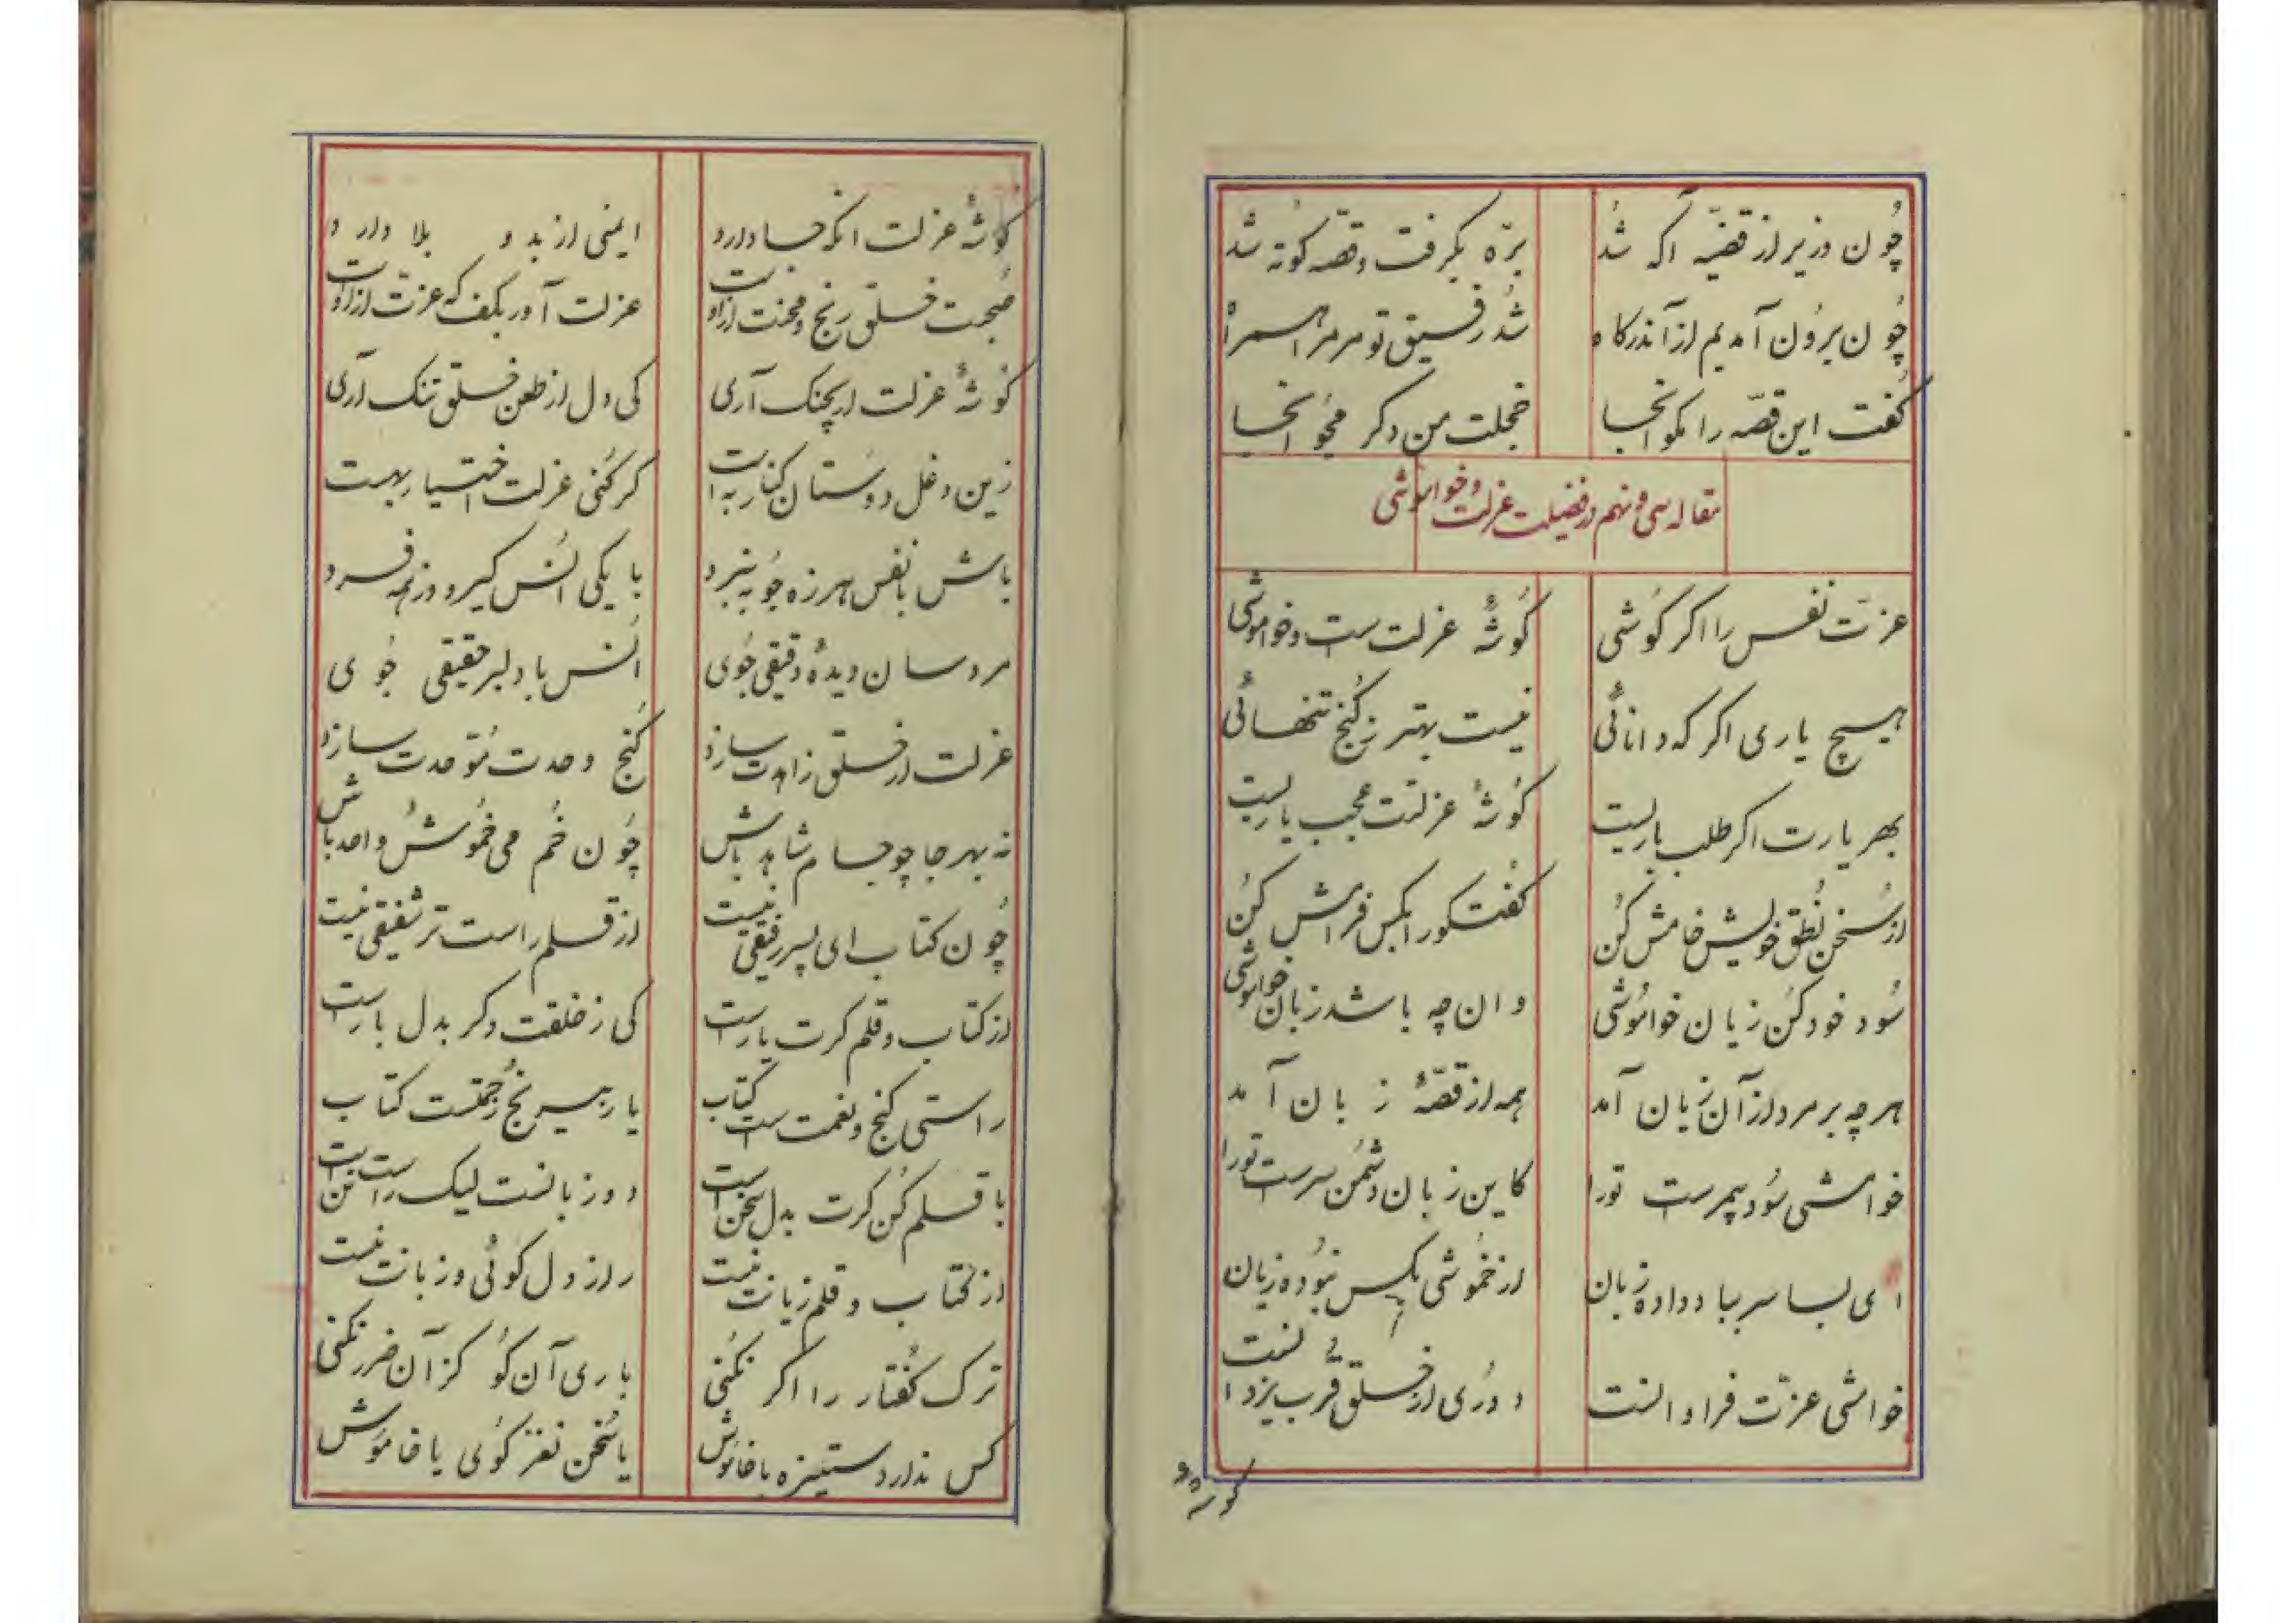 چون وزیر از قضیه آکه شد
بره بکرفت و قصه کوته شد
چون برون آمدیم از آن درکاه
شد رفیق تو مر مرا همراه
کفت این قصه را مکو انجا
خجلت من دکر مجو انجا
مقاله سی و نهم در فضیلت عزلت و خواموشی
عزت نفس را اکر کوشی
کوشهٔ عزلت ست و خواموشی
هیچ یاری اکر که دانائی
نیست بهتر ز کنج تنهائی
بهر یارت اکر طلب باریست
کوشهٔ عزلتت عجب یاریست
از سخن نطق خویش خامش کن
کفتکو را بکس فرامش کن
سود خود کن زیان خواموشی
وان چه باشد زبان خواموشی
هر چه بر مرد از آن زیان آمد
همه از قصهٔ زبان آمد
خوامشی سود بیمرست تورا
کاین زبان دشمن سرست تورا
ای بسا سر بباد داده زبان
از خموشی بکس نبوده زیان
خوامشی عزت فراوانست
دوری از خلق قرب یزدانست
کوشهٔ
کوشهٔ عزلت انکه جا دارد
ایمنی از بد و بلا دارد
صحبت خلق رنج و محنت ازاوست
عزلت آور بکف که عزت ازاوست
کوشهٔ عزلت ار بچنک آری
کی دل از طعن خلق تنک آری
زین دغل دوستان کنار به است
کر کنی عزلت اختیار بهست
باش با نفس هرزه جو به نبرد
با یکی انس کیر وز همه فرد
مردسان دیدهٔ دقیقی جوی
انس با دلبر حقیقی جوی
عزلت از خلق زاهدت سازد
کنج وحدت موحدت سازد
نه بهر جا چو جام شاهد باش
چون خم می خموش و واحد باش
چون کتاب ای پسر رفیقی نیست
از قلم راست تر شفیقی نیست
از کتاب و قلم کرت یار است
کی ز خلقت دکر بدل بار است
راستی کنج و نعمت ست کتاب
یار بی رنج و زحمتست کتاب
با قلم کن کرت بدل سخن است
دو زبانست لیک راست تن است
از کتاب و قلم زیانت نیست
راز دل کوئی و زبانت نیست
ترک کفتار را اکر نکنی
باری آن کو کز آن ضرر نکنی
کس ندارد ستیزه با خاموش
یا سخن نغز کوی یا خاموش